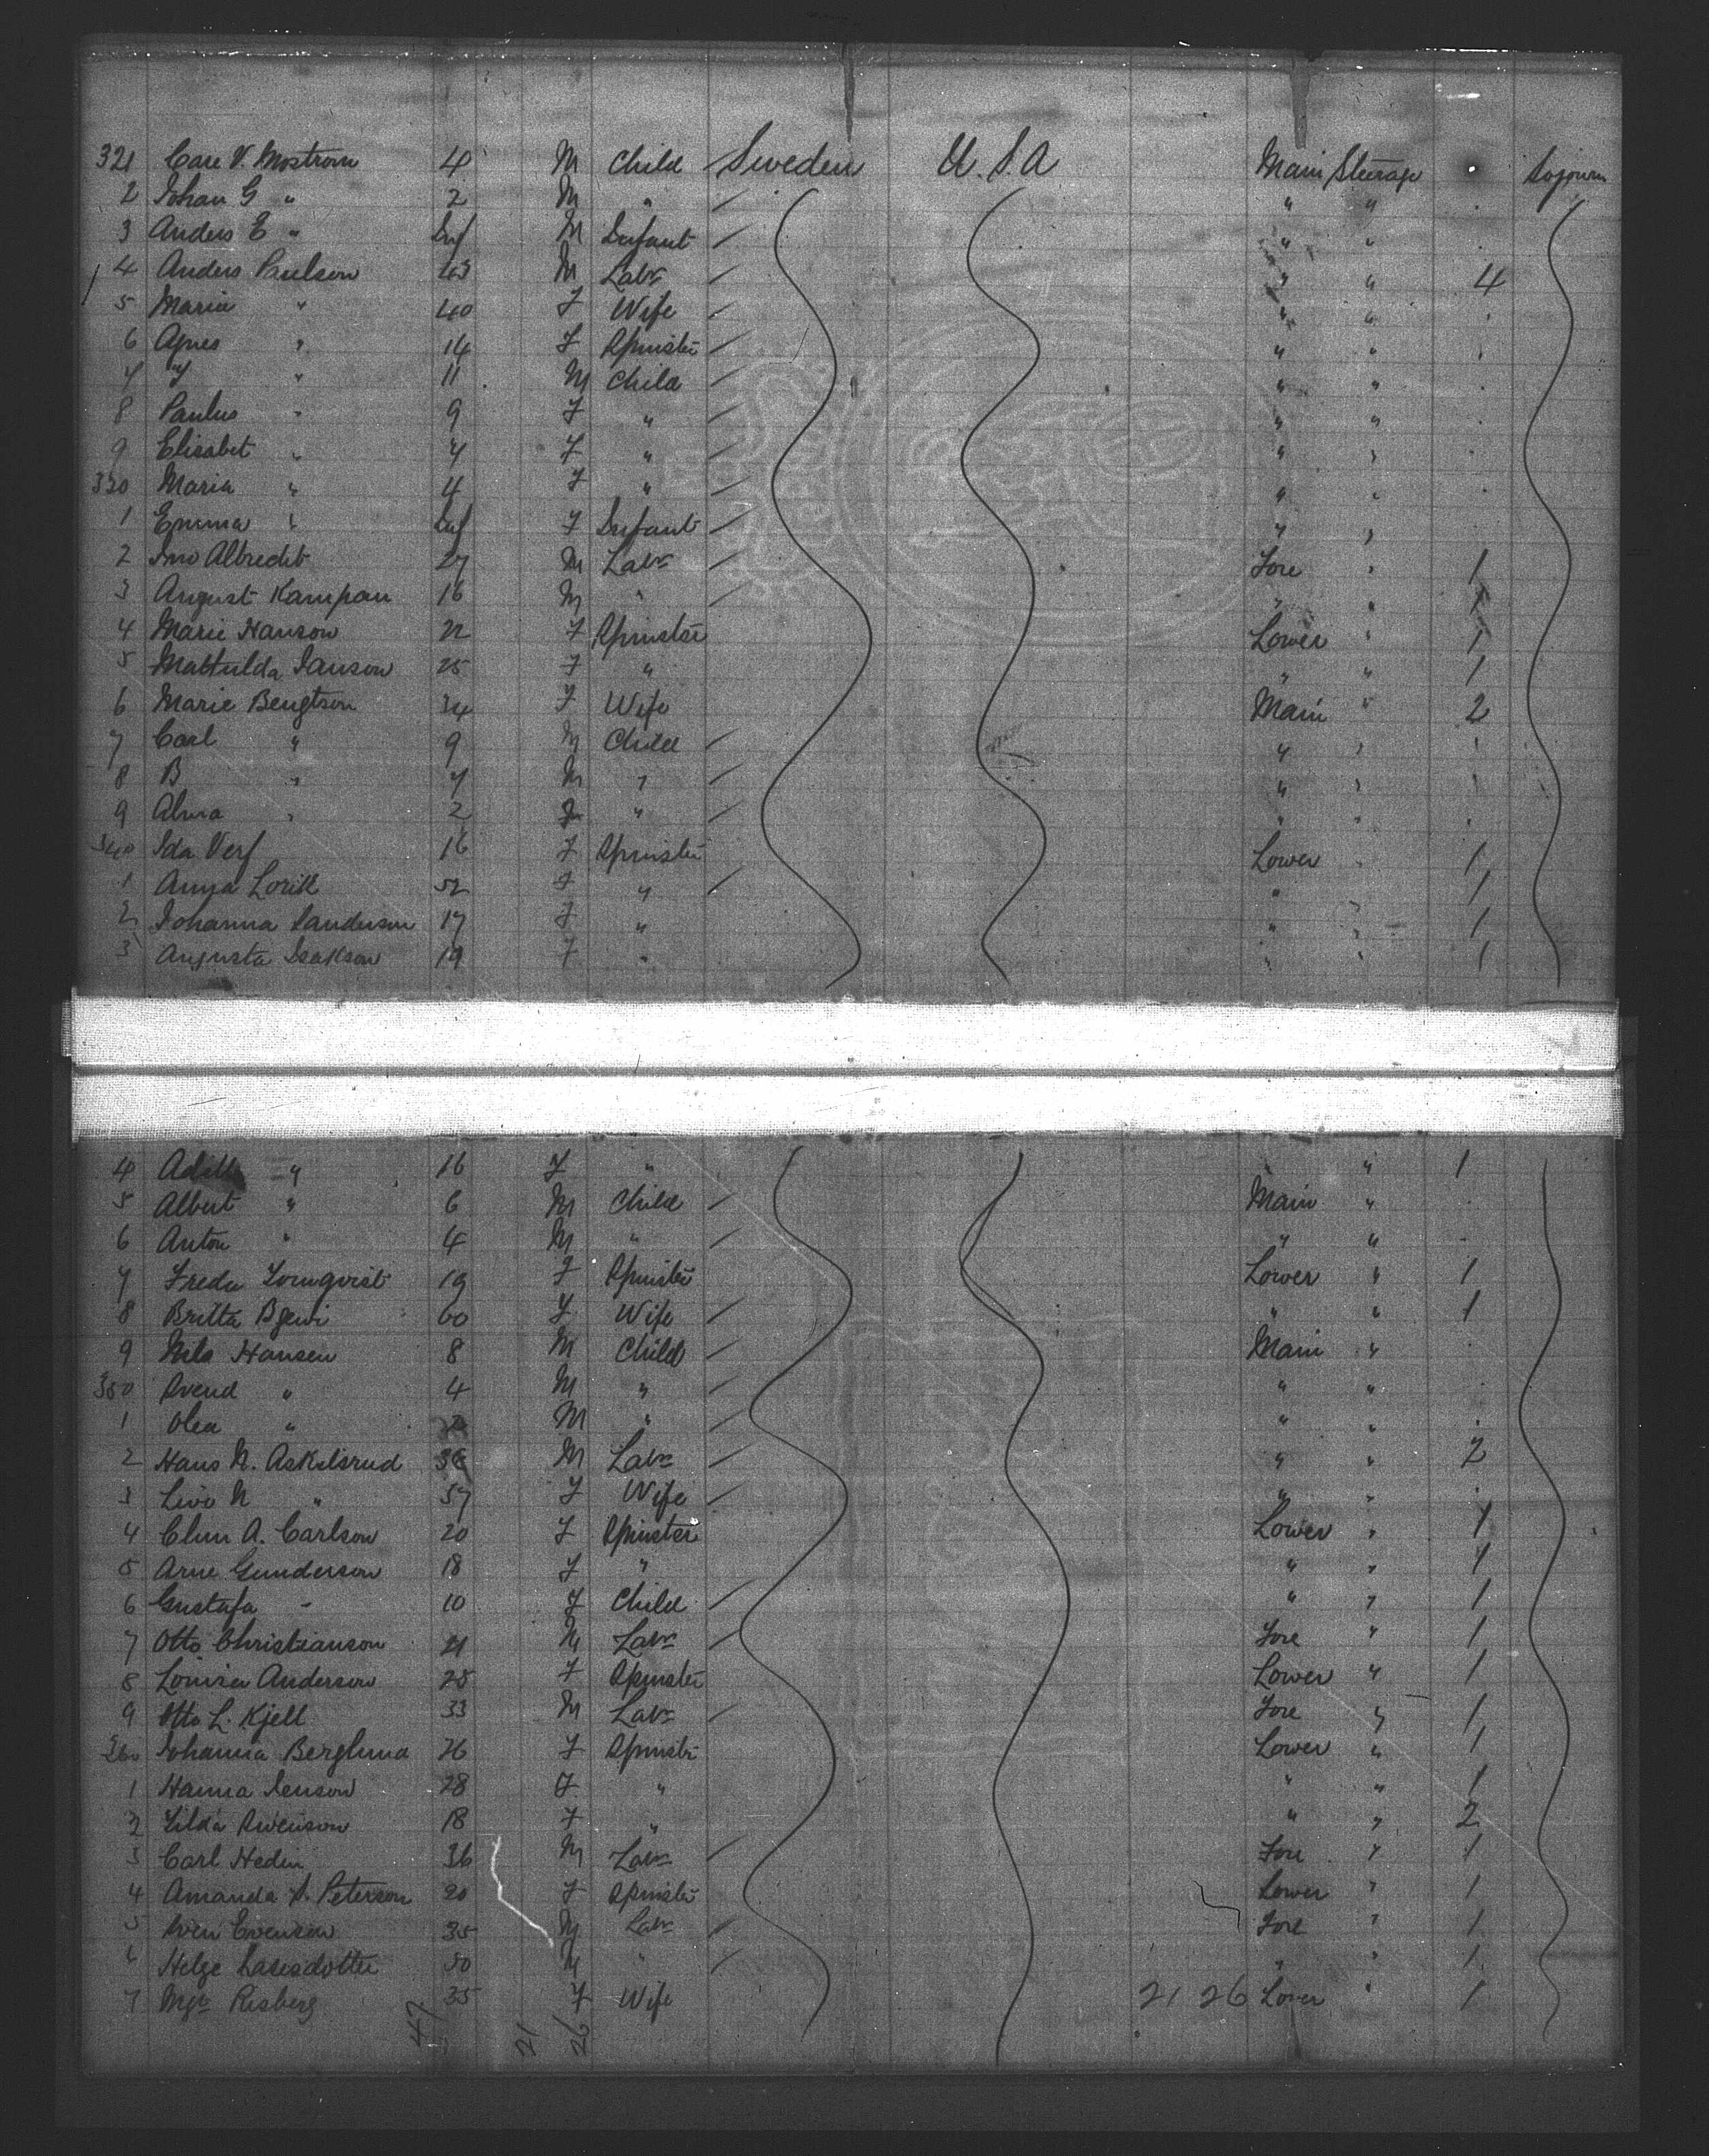 321 Carl V. Mostrom 4 M Child Sweden U.S.A Main Steerage . Sojourn
2 Johan G " 2 M " " "
3 Anders E " Inf M Infant " "
4 Anders Paulson 43 M Labr " " 4
5 Maria " 40 F Wife " "
6 Agnes " 14 F Spinster " "
7 " 11 M Child " "
8 Paulus " 9 F " " "
9 Elisabet " 7 F " " "
330 Maria " 4 F " " "
1 Emma " Inf F Infant " "
2 Jno Albrecht 27 M Labr Fore " 1
3 August Kampau 16 M " " " 1
4 Marie Hanson 22 F Spinster Lower " 1
5 Mathilda Janson 25 F " " " 1
6 Marie Bengtson 34 F Wife Main " 2
7 Carl " 9 M Child " "
8 B " 7 M " " "
9 Alma " 2 " " "
340 Ida Verf 16 F Spinster Lower " 1
1 Anna Lorill 52 F " " 1
2 Johanna Sanderson 17 F " " " 1
3 Augusta Isakson 19 F " " " 1
4 " 16 F " " 1
5 Albert " 6 M Child Main "
6 Anton " 4 M " " "
7 Freda Tornqvist 19 F Spinster Lower " 1
8 Britta 60 F Wife " " 1
9 Nils Hansen 8 M Child Main "
350 Svend " 4 M " " "
1 Olea " M " " "
2 Hans N. Askilsrud 36 M Labr " " 2
3 Live N " 57 F Wife " "
4 A. Carlson 20 F Spinster Lower " 1
5 Arne Gunderson 18 F " " " 1
6 Gustafa " 10 F Child " " 1
7 Otto Christianson 21 M Labr Fore " 1
8 Louisa Anderson 25 F Spinster Lower " 1
9 Otto L. Kjell 33 M Labr Fore " 1
360 Johanna Berglund 26 F Spinster Lower " 1
1 Hanna Jenson 28 F " " " 1
2 Hilda Swenson 18 F " " " 2
3 Carl Hedin 36 M Labr Fore " 1
4 Amanda S. Peterson 20 F Spinster Lower " 1
5 Sven Evenson 35 M Labr Fore " 1
6 Helge Larsdotter 50 M " " " 1
7 Mgt Risberg 35 F Wife 21 26 Lower " 1
47 21 26